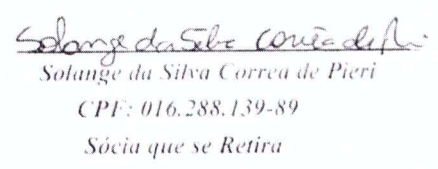 Solange da Silva Corrêa de Pieri
Solange da Silva Correa de Pieri
CPF: 016.288.139-89
Sócia que se Retira